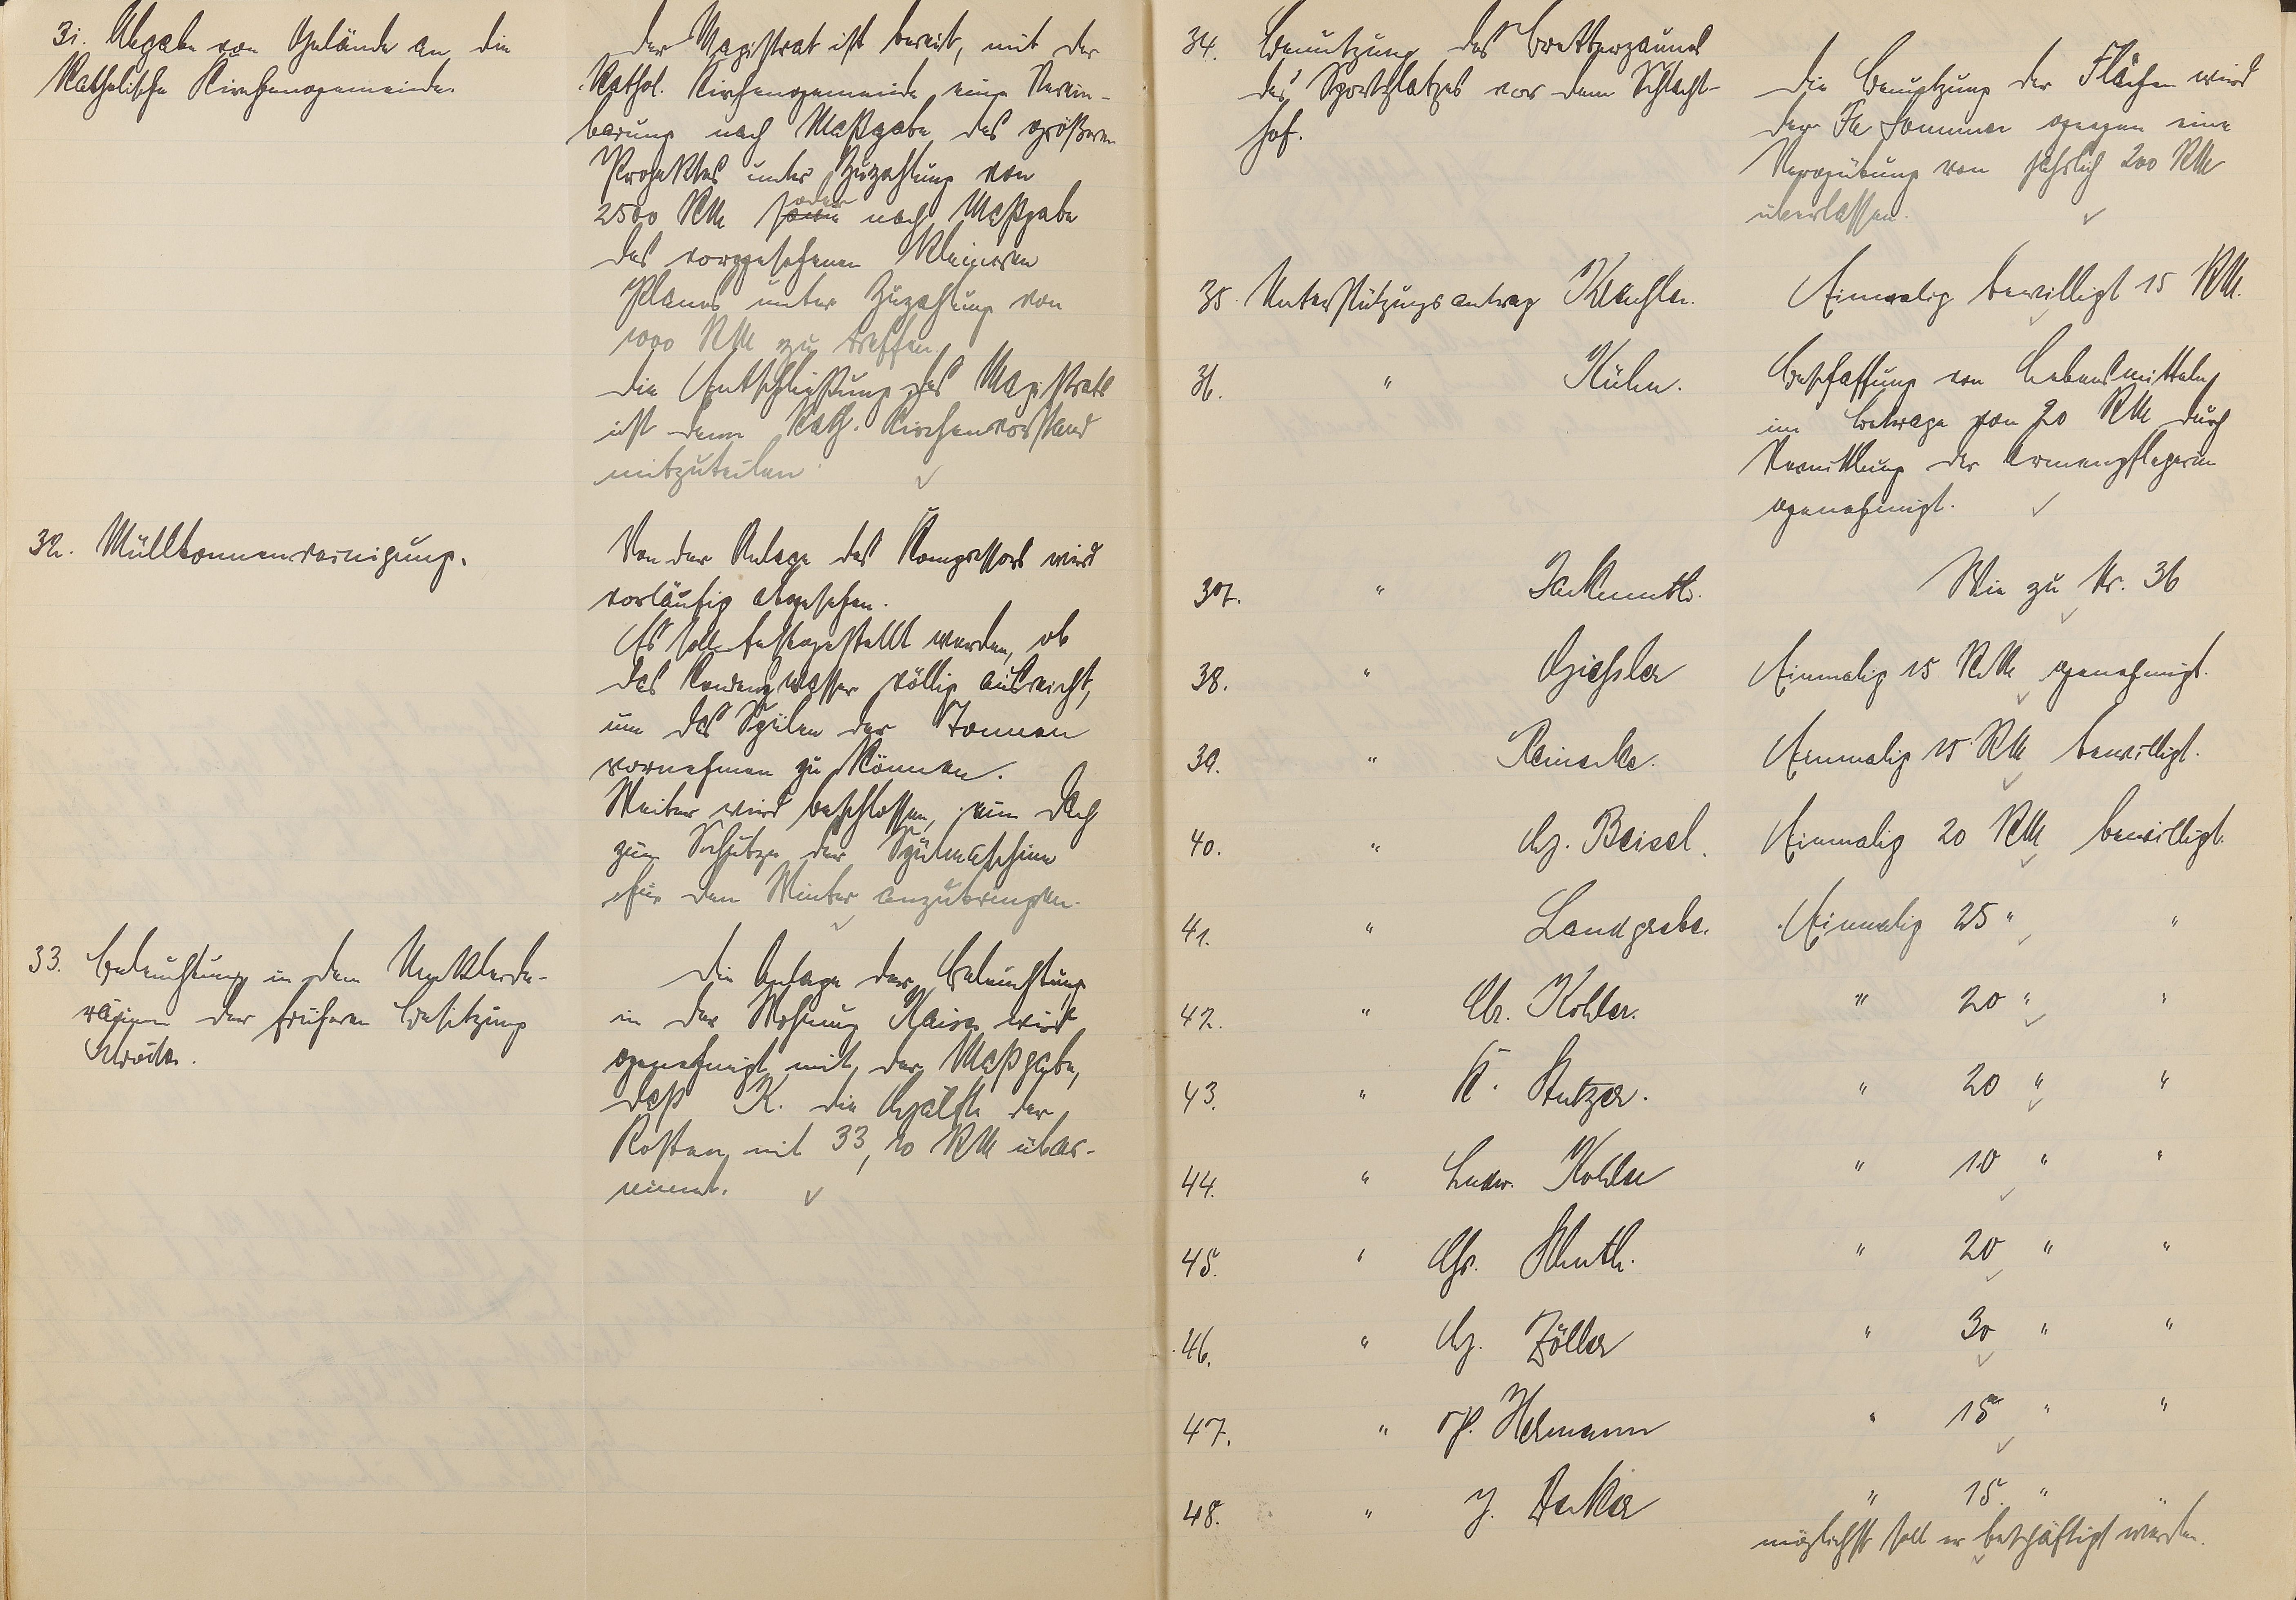 31. Abgabe von Gelände an die
Katholische Kirchengemeinde.
Der Magistrat ist bereit, mit der
Kathol. Kirchengemeinde eine Verein-
barung nach Maßgabe des größeren
Projektes unter Zuzahlung von
2500 RM oder nach Maßgabe
des vorgesehenen kleineren
Planes unter Zuzahlung von
1000 RM zu treffen.
Die Entschließung des Magistrats
ist dem Kath. Kirchenvorstand
mitzuteilen.
32. Mülltonnenreinigung.
Von der Anlage des Kompressors wird
vorläufig abgesehen.
Es soll festgestellt werden, ob
das Kondenzwasser völlig ausreicht,
um das Spülen der Tonnen
vornehmen zu können.
Weiter wird beschlossen, ein Dach
zum Schutze der Spülmaschine
für den Winter anzubringen.
33. Beleuchtung in den
der früheren Besitzung
Die Anlage der Beleuchtung
in der Wohnung Kaiser wird
genehmigt mit der Maßgabe,
daß K. die Hälfte der
Kosten mit 33,20 RM über-
nimmt.
34. Benutzung des Bretterzaunes
des Sportplatzes vor dem Schlacht-
hof.
Die Benutzung der Flächen wird
der Fa. Sommer gegen eine
Vergütung von jährlich 200 RM
überlassen.
35. Unterstützungsantrag
Einmalig bewilligt 15 RM.
36. " Kühn.
Beschaffung von Lebensmitteln
im Betrage von 20 RM durch
Vermittlung der Armenpflegerin
genehmigt.
37. " Wie zu Nr. 36
38. " Giehsler Einmalig 15 RM genehmigt.
39. " Reinecke. Einmalig 15 RM bewilligt.
40. " Hch. Beisel. Einmalig 20 RM bewilligt.
41. " Landgrebe. Einmalig 25 " "
42. " Chr. Kohler. " 20 " "
43. " K. Stutzer. " 20 " "
44. " Ludw. Kohler " 10 " "
45. " Chr. " 20 " "
46. " Hch. Zöller " 30 " "
47. " Hermann " 15 " "
48. " J. Becker " 15. " "
möglichst soll er beschäftigt werden.